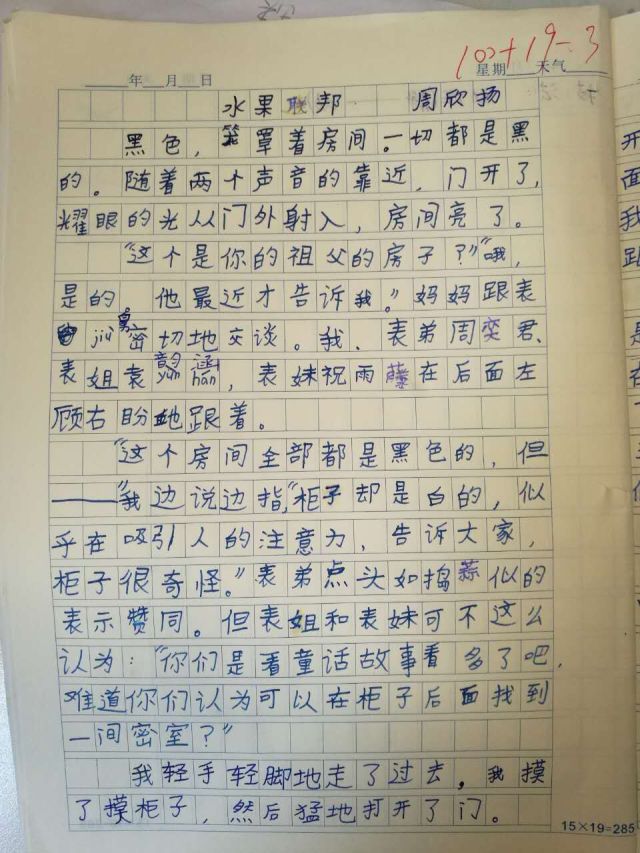 100+19-3
年 月 日 星期 天气
水果联邦 周欣扬
黑色，笼罩着房间。一切都是黑
的。随着两个声音的靠近，门开了，
耀眼的光从门外射入，房间亮了。
“这个是你的祖父的房子？”“哦，
是的，他最近才告诉我。”妈妈跟表
jiù舅密切地交谈。我、表弟周奕君、
表姐袁韵涵yùn hán，表妹祝雨藤在后面左
顾右盼地跟着。
“这个房间全部都是黑色的，但
——”我边说边指，“柜子却是白的，似
乎在吸引人的注意力，告诉大家，
柜子很奇怪。”表弟点头如捣蒜似的
表示赞同。但表姐和表妹可不这么
认为：“你们是看童话故事看多了吧，
难道你们认为可以在柜子后面找到
一间密室？”
我轻手轻脚地走了过去，我摸
了摸柜子，然后猛地打开了门。
15×19=285